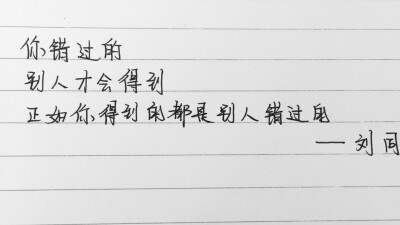 你错过的
别人才会得到
正如你得到的都是别人错过的
——刘同